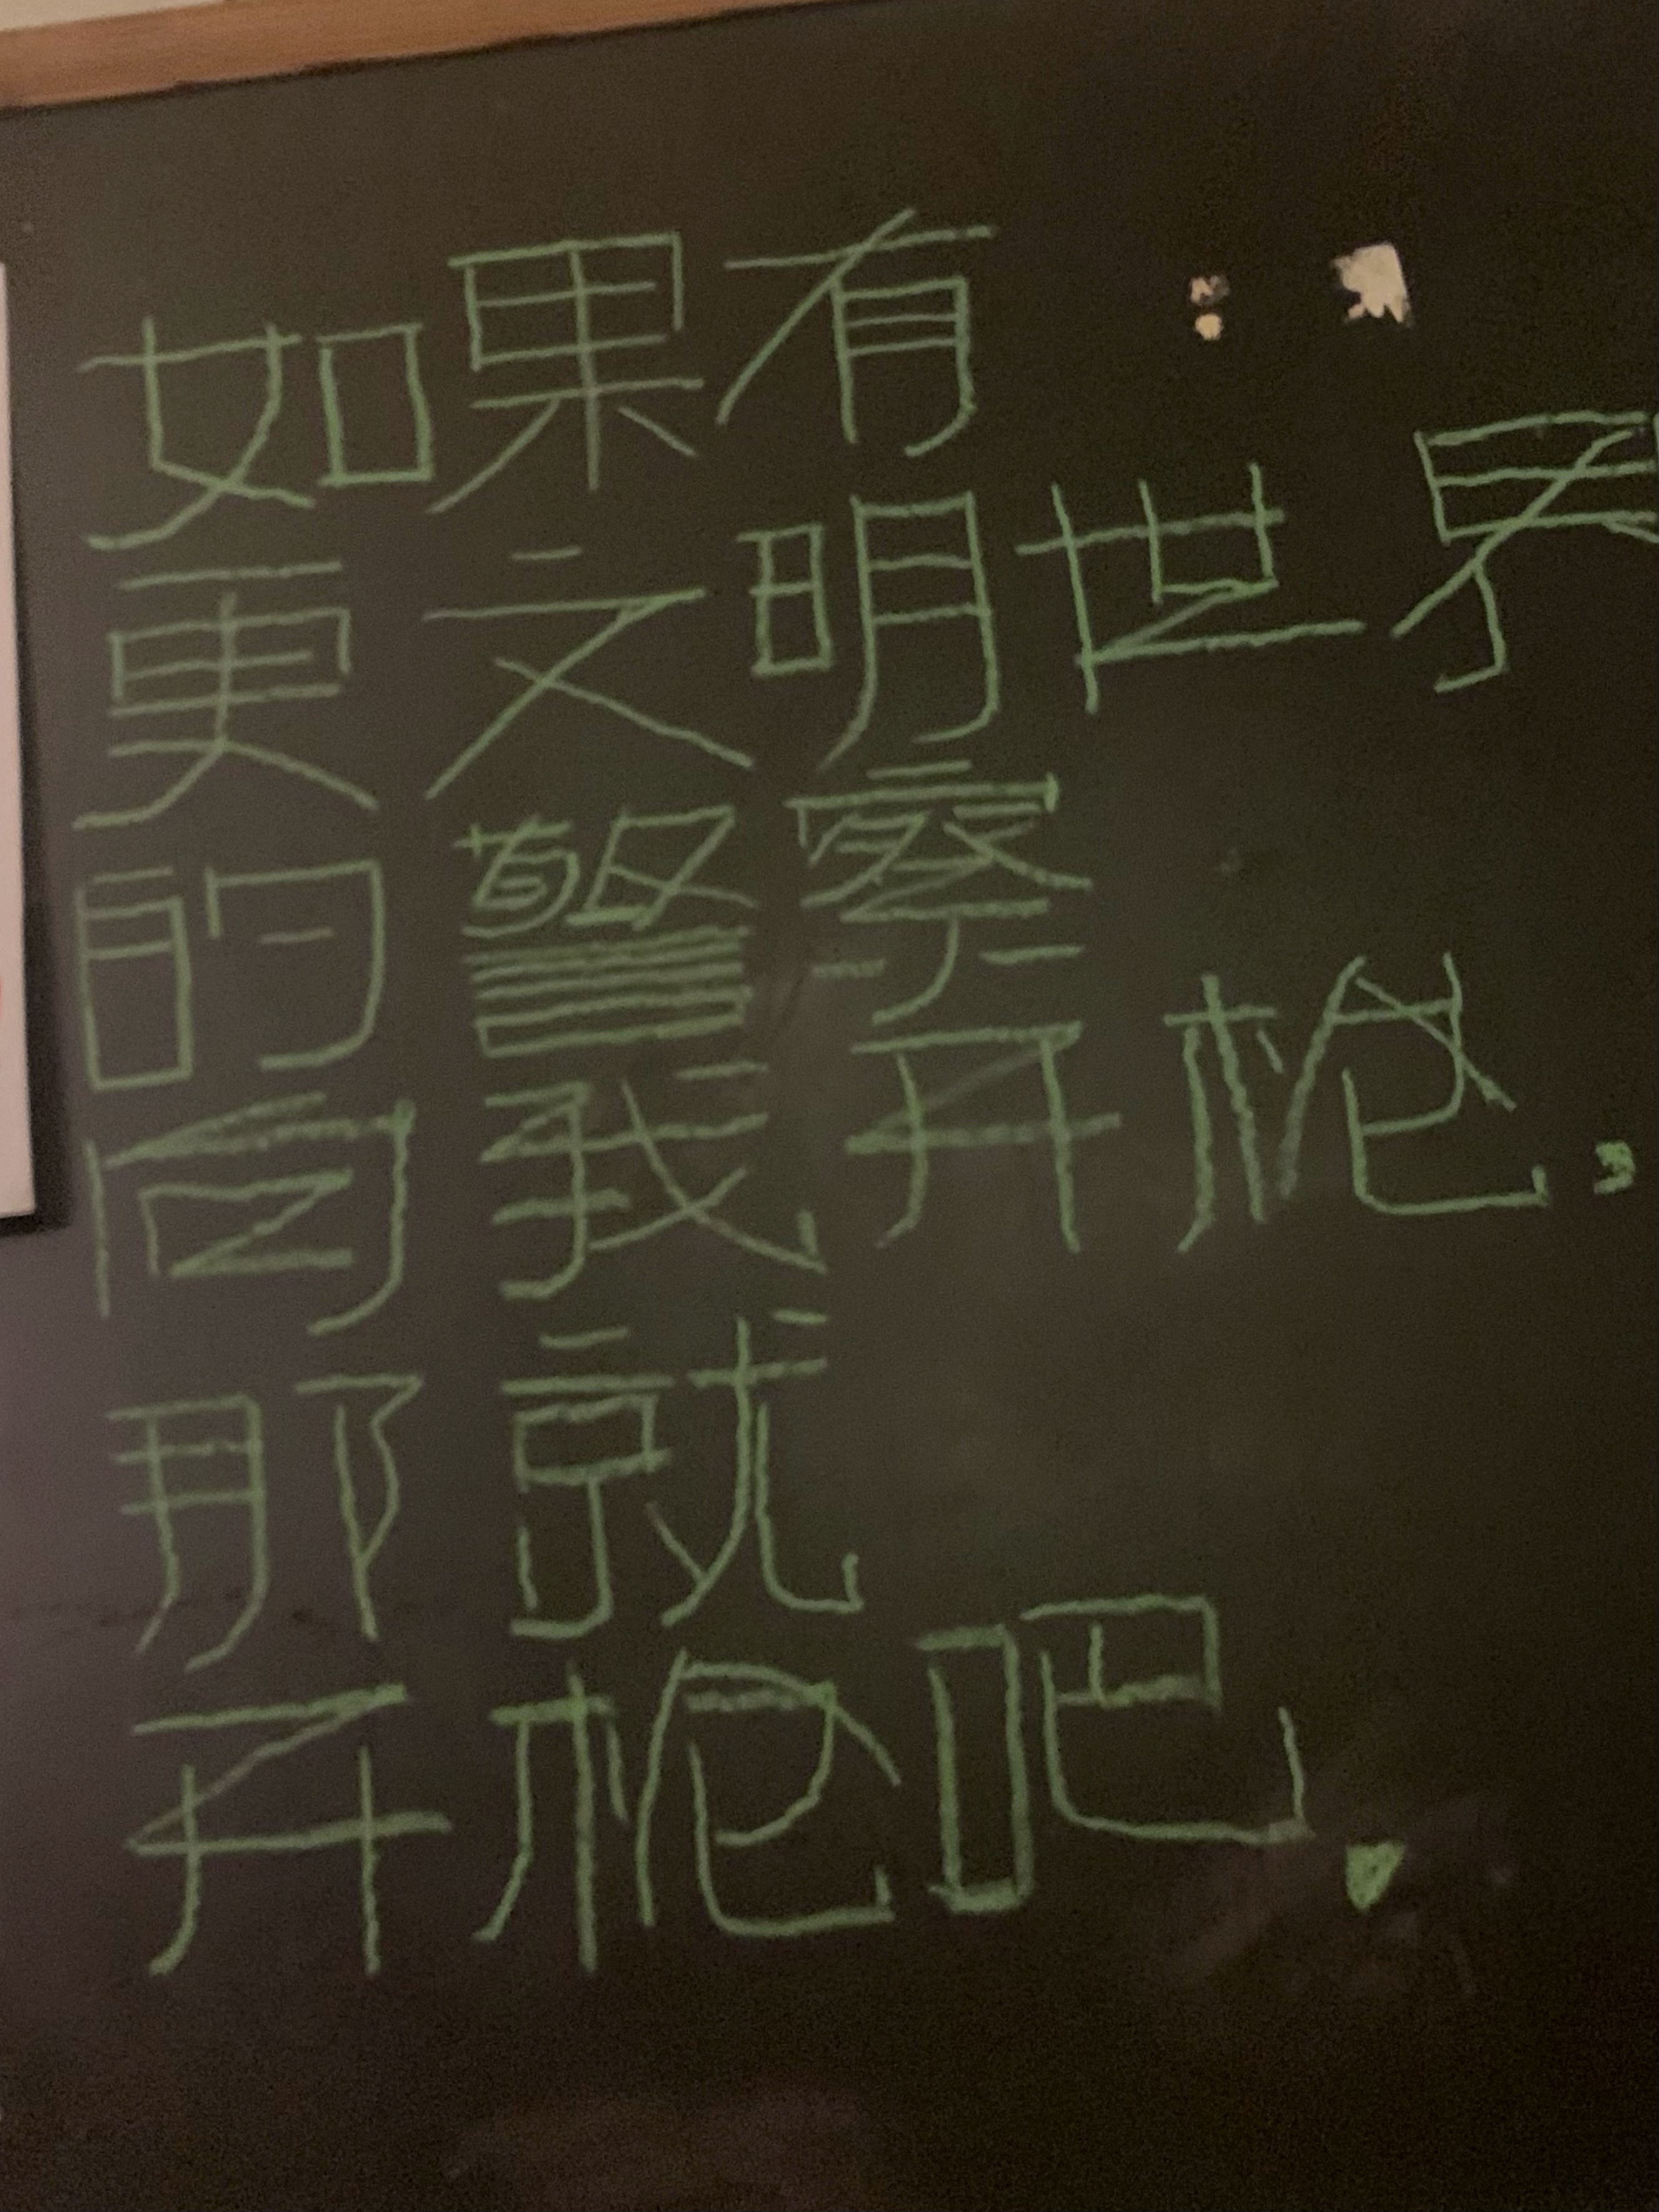 如果有
更文明世界
的警察
向我开枪,
那就
开枪吧.